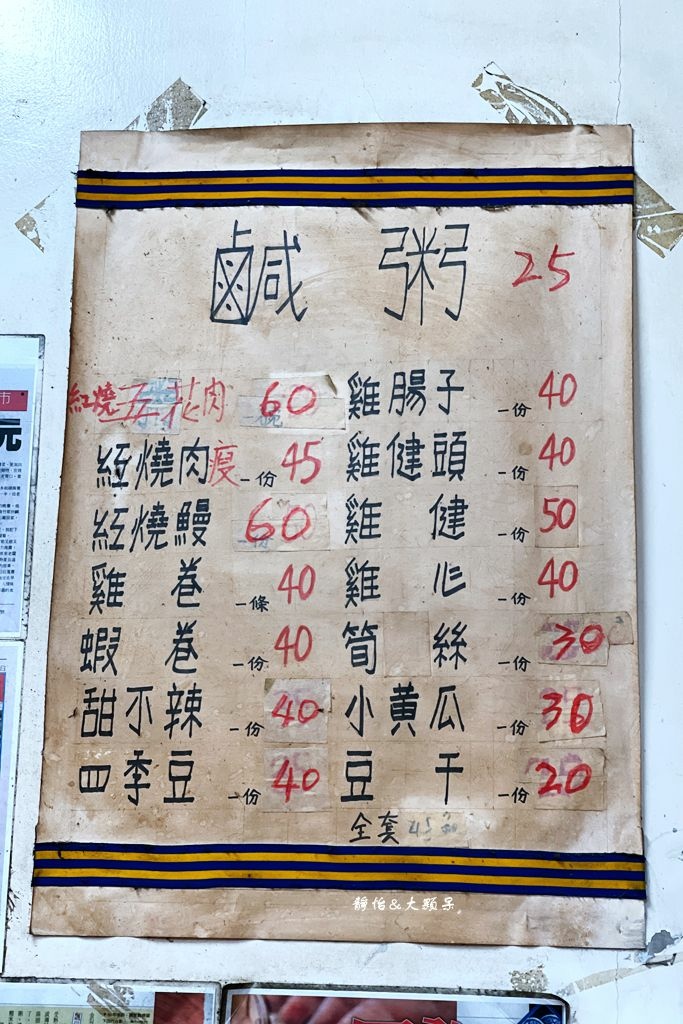 鹹粥 25
紅燒五花肉 60
紅燒肉瘦 一份 45
紅燒鰻 60
雞卷 一條 40
蝦卷 一份 40
甜不辣 一份 40
四季豆 一份 40
雞腸子 一份 40
雞健頭 一份 40
雞健 一份 50
雞心 一份 40
筍絲 一份 30
小黃瓜 一份 30
豆干 一份 20
全套
靜怡&大顆呆
市
元